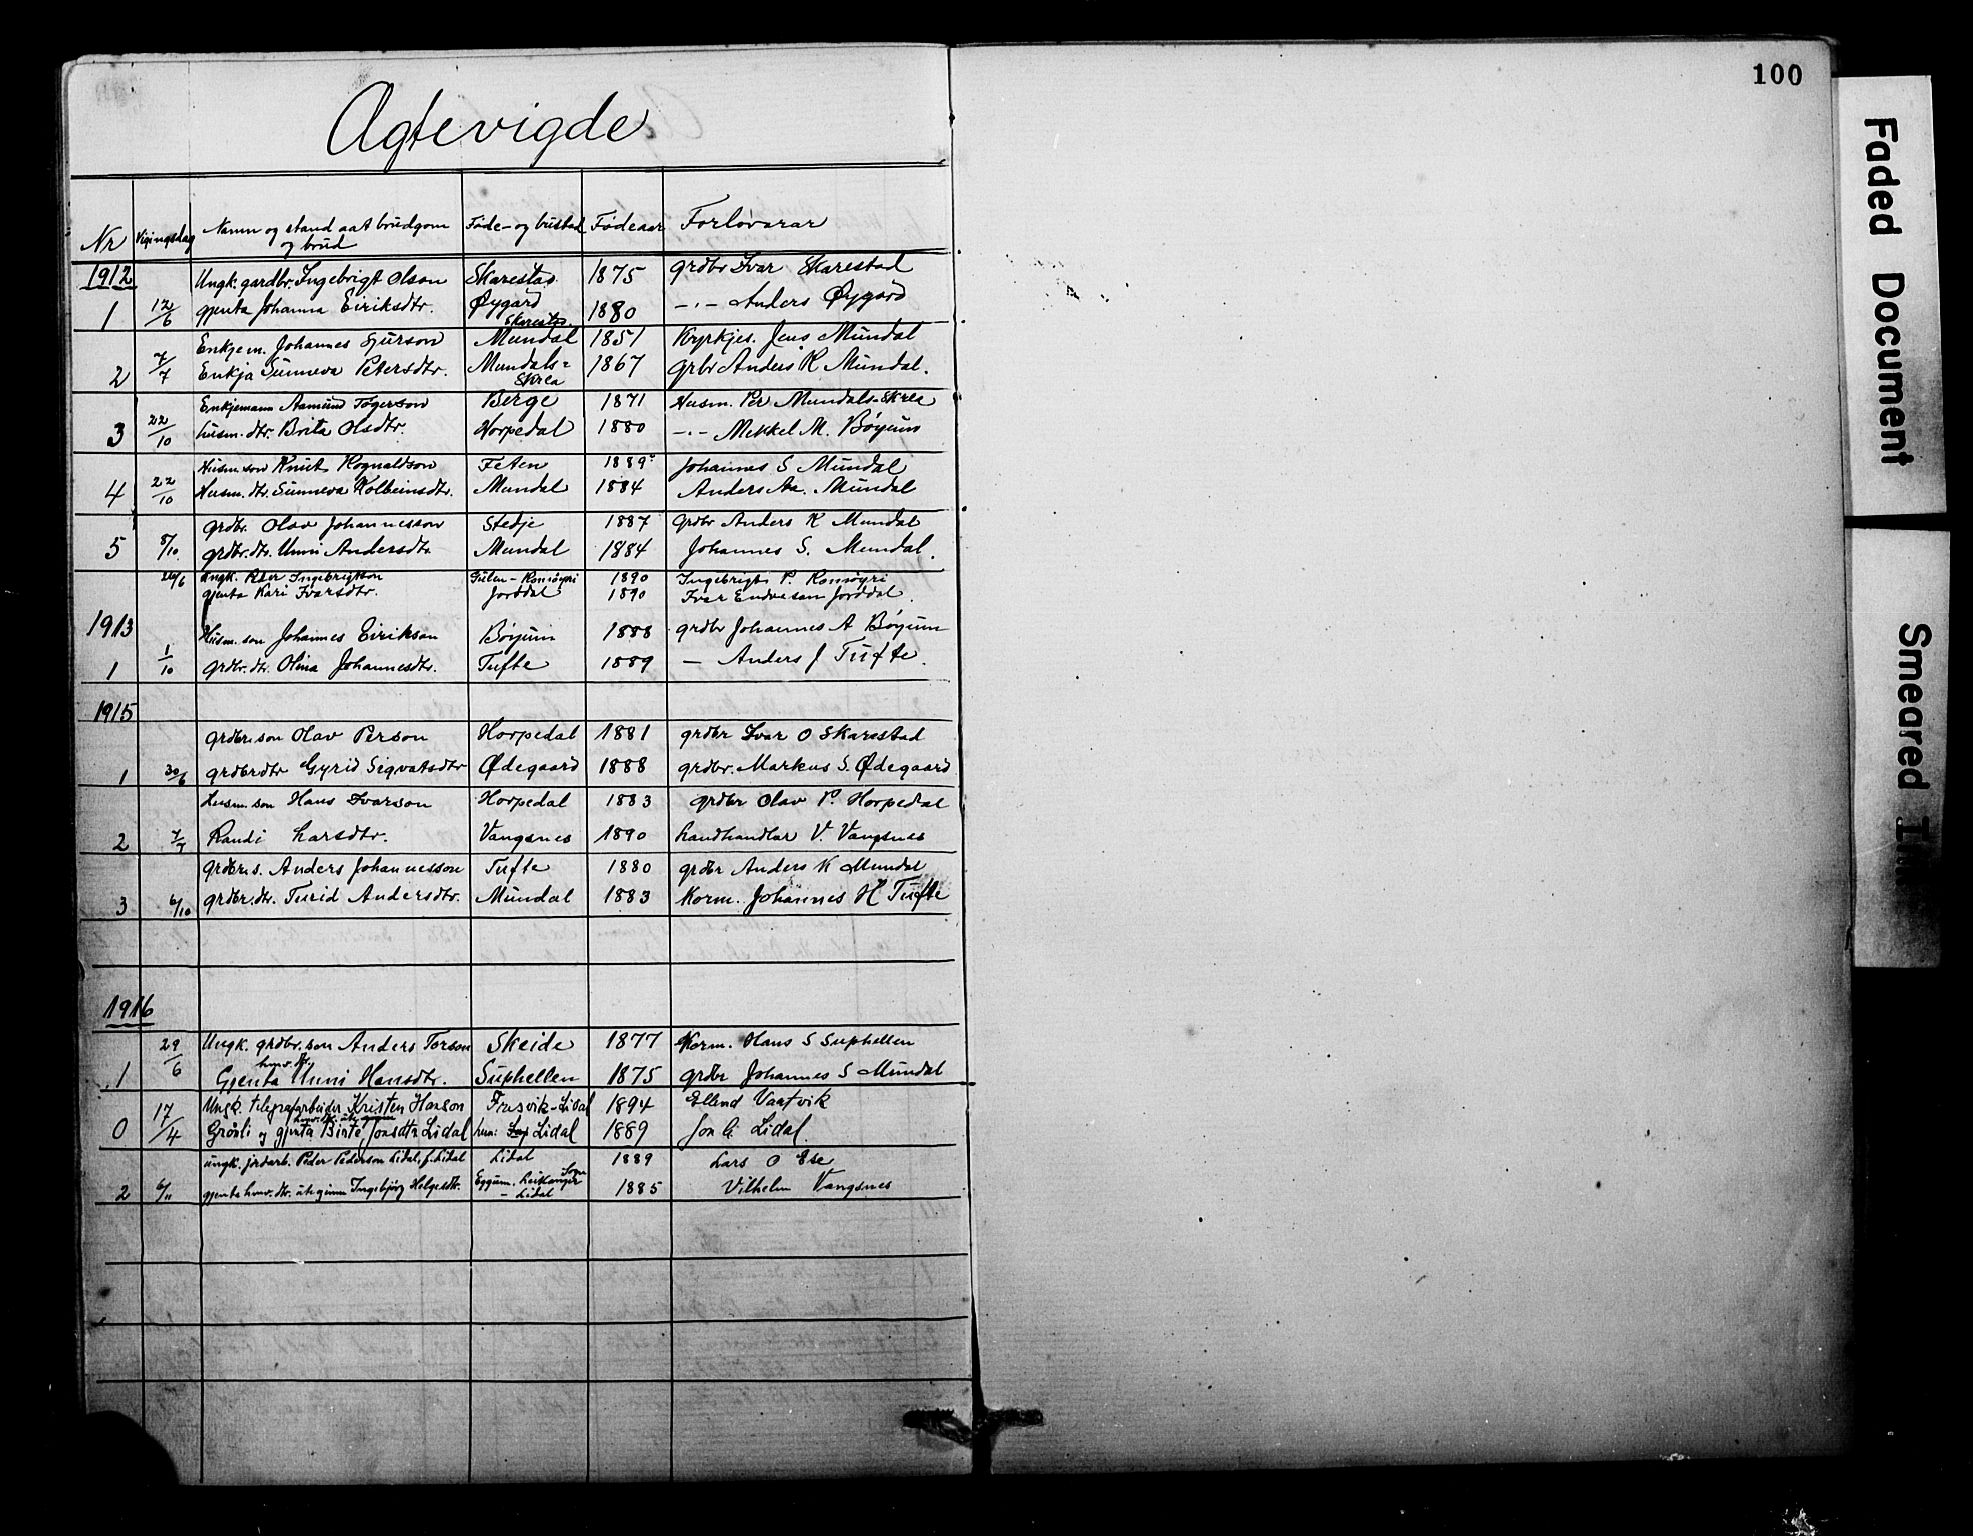 100
Agtevigde
Nr Vigingsdag Namn og stand aat brudgom og brud Føde- og bustad Fødeaar Forlovarar
1912 Ungk. gardbr. Ingebrigt Olson Skarestad 1875 grdbr Ivar Skarestad
1 12/6 gjenta Johanna Eiriksdtr. Øygard Skarestad 1880 -"- Anders Øygard
Enkjem. Johannes Sjurson Mundal 1851 Kyrkjes. Jens Mundal
2 7/7 Enkja Sunneva Petersdtr. Mundals= Skrea 1867 grbr Anders K Mundal.
Enkjemann Aamund Togerson Berge 1871 Husm. Per Mundals-Skrea
3 22/10 husm. dtr. Brita Olsdtr. Horpedal 1880 -"- Mikkel M. Bøyum
Husm. son Knut Rognaldson Feten 1889 Johannes S Mundal
4 22/10 Husm. dtr. Sunneva Kolbeinsdtr. Mundal 1884 Anders Aa. Mundal
grdbr. Olav Johannesson Stedje 1887 Grdbr Anders K Mundal
5 8/10 grdbr. dtr. Unni Andersdtr Mundal 1884 Johannes S. Mundal.
26/6 ungk. Peer Ingebrigtson Gulen - Romøyri 1890 Ingebrigt P. Romøyri
gjenta Kari Ivarsdtr. Jorddal 1890 Ivar Endresen Jorddal.
1913 Husm. son Johannes Eirikson Bøyum 1888 grdbr Johannes A Bøyum
1 1/10 grdbr. dtr. Olina Johannesdtr. Tufte 1889 — Anders J Tufte.
1915
grdbr.son Olav Person Horpedal 1881 grdbr Ivar O Skarestad
1 30/6 grdbr.dtr Gyrid Sigvatsdtr Ødegaard 1888 grdbr. Markus S. Ødegaard
husm. son Hans Ivarson Horpedal 1883 grdbr Olav P. Horpedal
2 7/7 Randi Larsdtr. Vangsnes 1890 Landhandlar V. Vangsnes
Grdbr.s. Anders Johannesson Tufte 1880 grdbr Anders K Mundal
3 6/10 grdbr. dtr. Turid Andersdtr. Mundal 1883 Korm. Johannes H Tufte
1916
29/6 Ungk. grdbr. son Anders Torson Skeide 1877 Korm. Hans S Suphellen
1 Gjenta Unni Hansdtr. Suphellen 1875 grdbr Johannes S Mundal
17/4 Ungk. telegrafarbeider Kristen Hanson Fresvik - Lidal 1894 Ellend Vartvik
0 Grønli og gjenta Birte Jonsdtr Lidal Lidal 1889 Jon G. Lidal.
ungk. jordarb. Peder Pederson Lidal, f. Lidal Lidal 1889 Lars O Ese
2 6/11 gjenta hmv. dtr. Ingebjørg Helgesdtr. Eggum. Leikanger Sogn - Lidal 1885 Vilhelm Vangsnes
Faded Document
Smeared